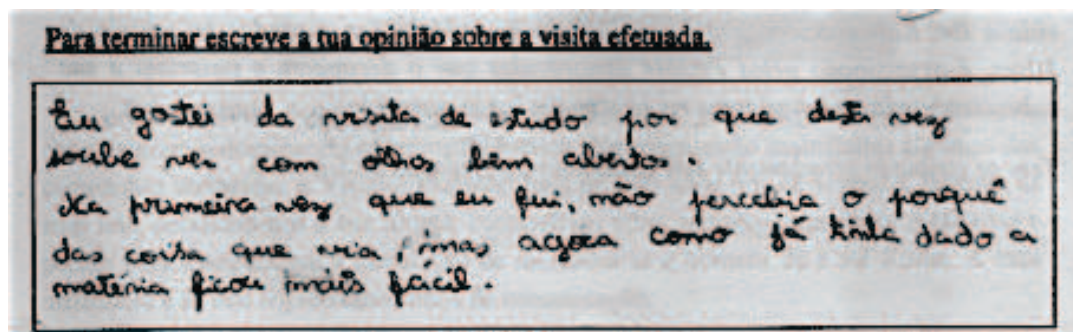 Para terminar escreve a tua opinião sobre a visita efetuada.
Eu gostei da visita de estudo por que desta vez
soube ver com olhos bem abertos.
Na primeira vez que eu fui, não percebia o porquê
das coisa que via, mas agora como já tinha dado a
matéria ficou mais fácil.